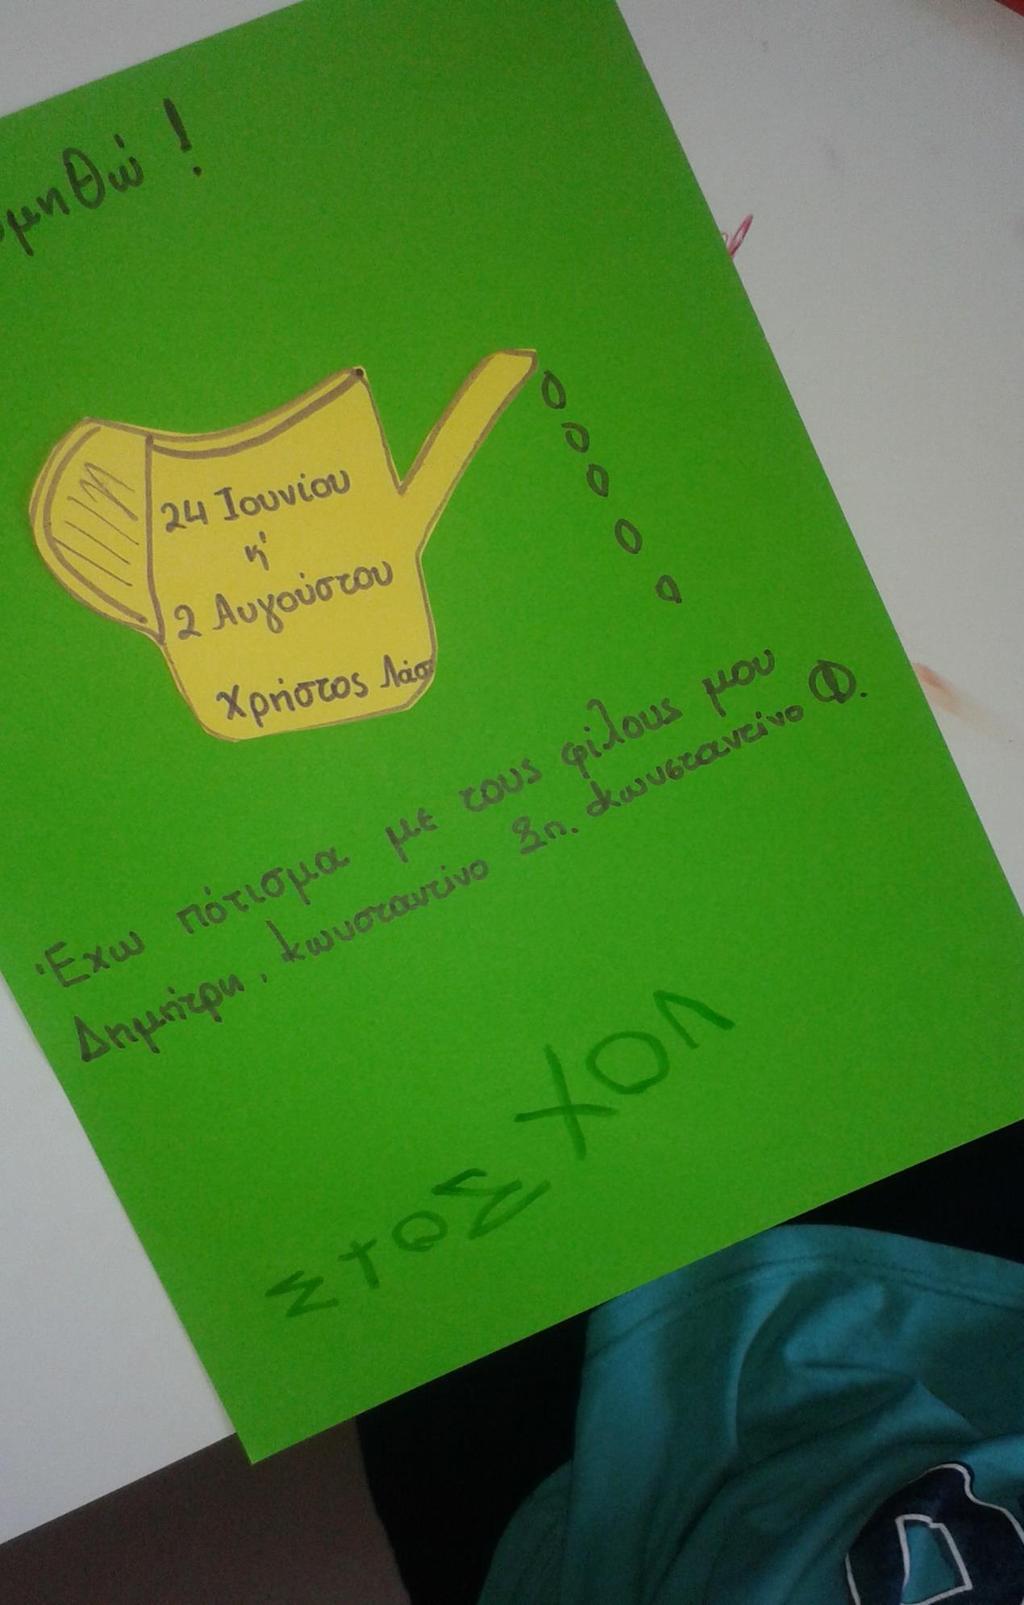 μηθώ !
24 Ιουνίου
ή
2 Αυγούστου
Χρήστος Λάσ
Έχω πότισμα με τους φίλους μου
Δημήτρη, Κωνσταντίνο Ξη. Κωνσταντίνο Φ.